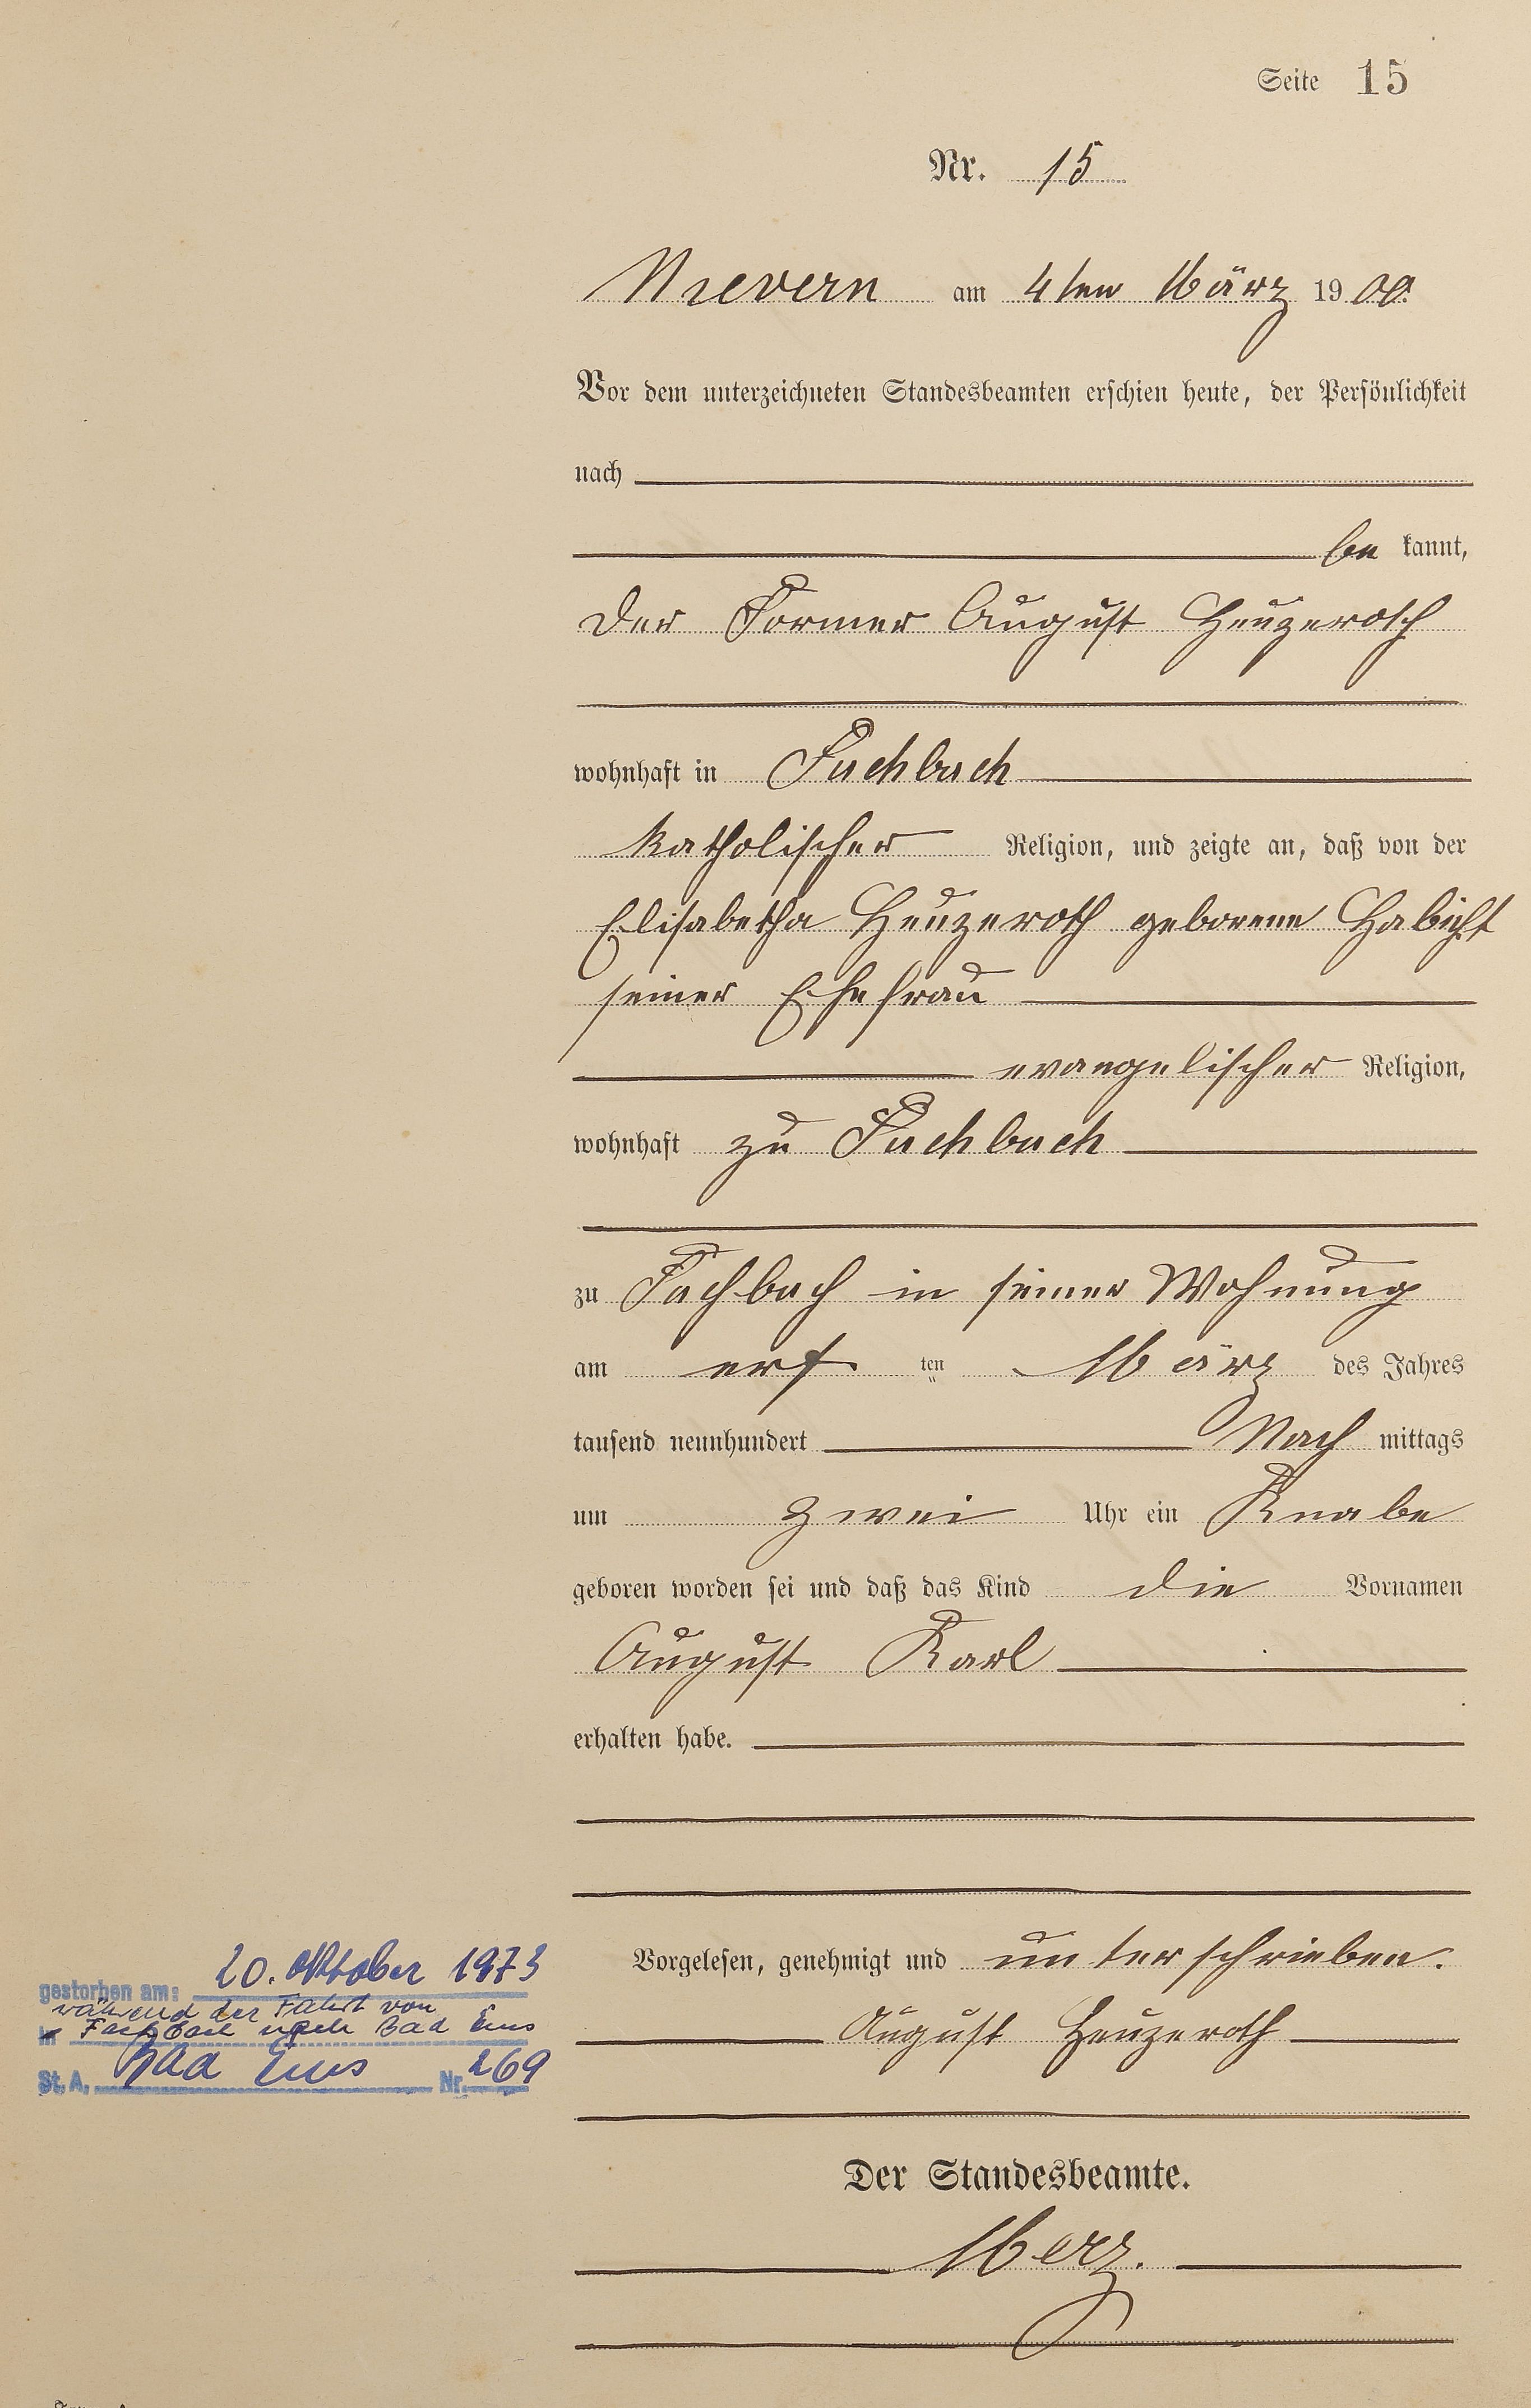 Seite 15
Nr. 15
Nievern am 4ten März 1900.
Vor dem unterzeichneten Standesbeamten erschien heute, der Persönlichkeit
nach
be kannt,
der Former August Heuzeroth
wohnhaft in Fachbach
katholischer Religion, und zeigte an, daß von der
Elisabetha Heuzeroth geborene Habicht
seiner Ehefrau
evangelischer Religion,
wohnhaft zu Fachbach
zu Fachbach in seiner Wohnung
am ersten März des Jahres
tausend neunhundert Nach mittags
um zwei Uhr ein Knabe
geboren worden sei und daß das Kind die Vornamen
August Karl
erhalten habe.
Vorgelesen, genehmigt und unterschrieben.
August Heuzeroth
Der Standesbeamte.
Merz.
gestorben am: 20. Oktober 1973
während der Fahrt von
in Fachbach nach Bad Ems
St. A. Bad Ems Nr. 269